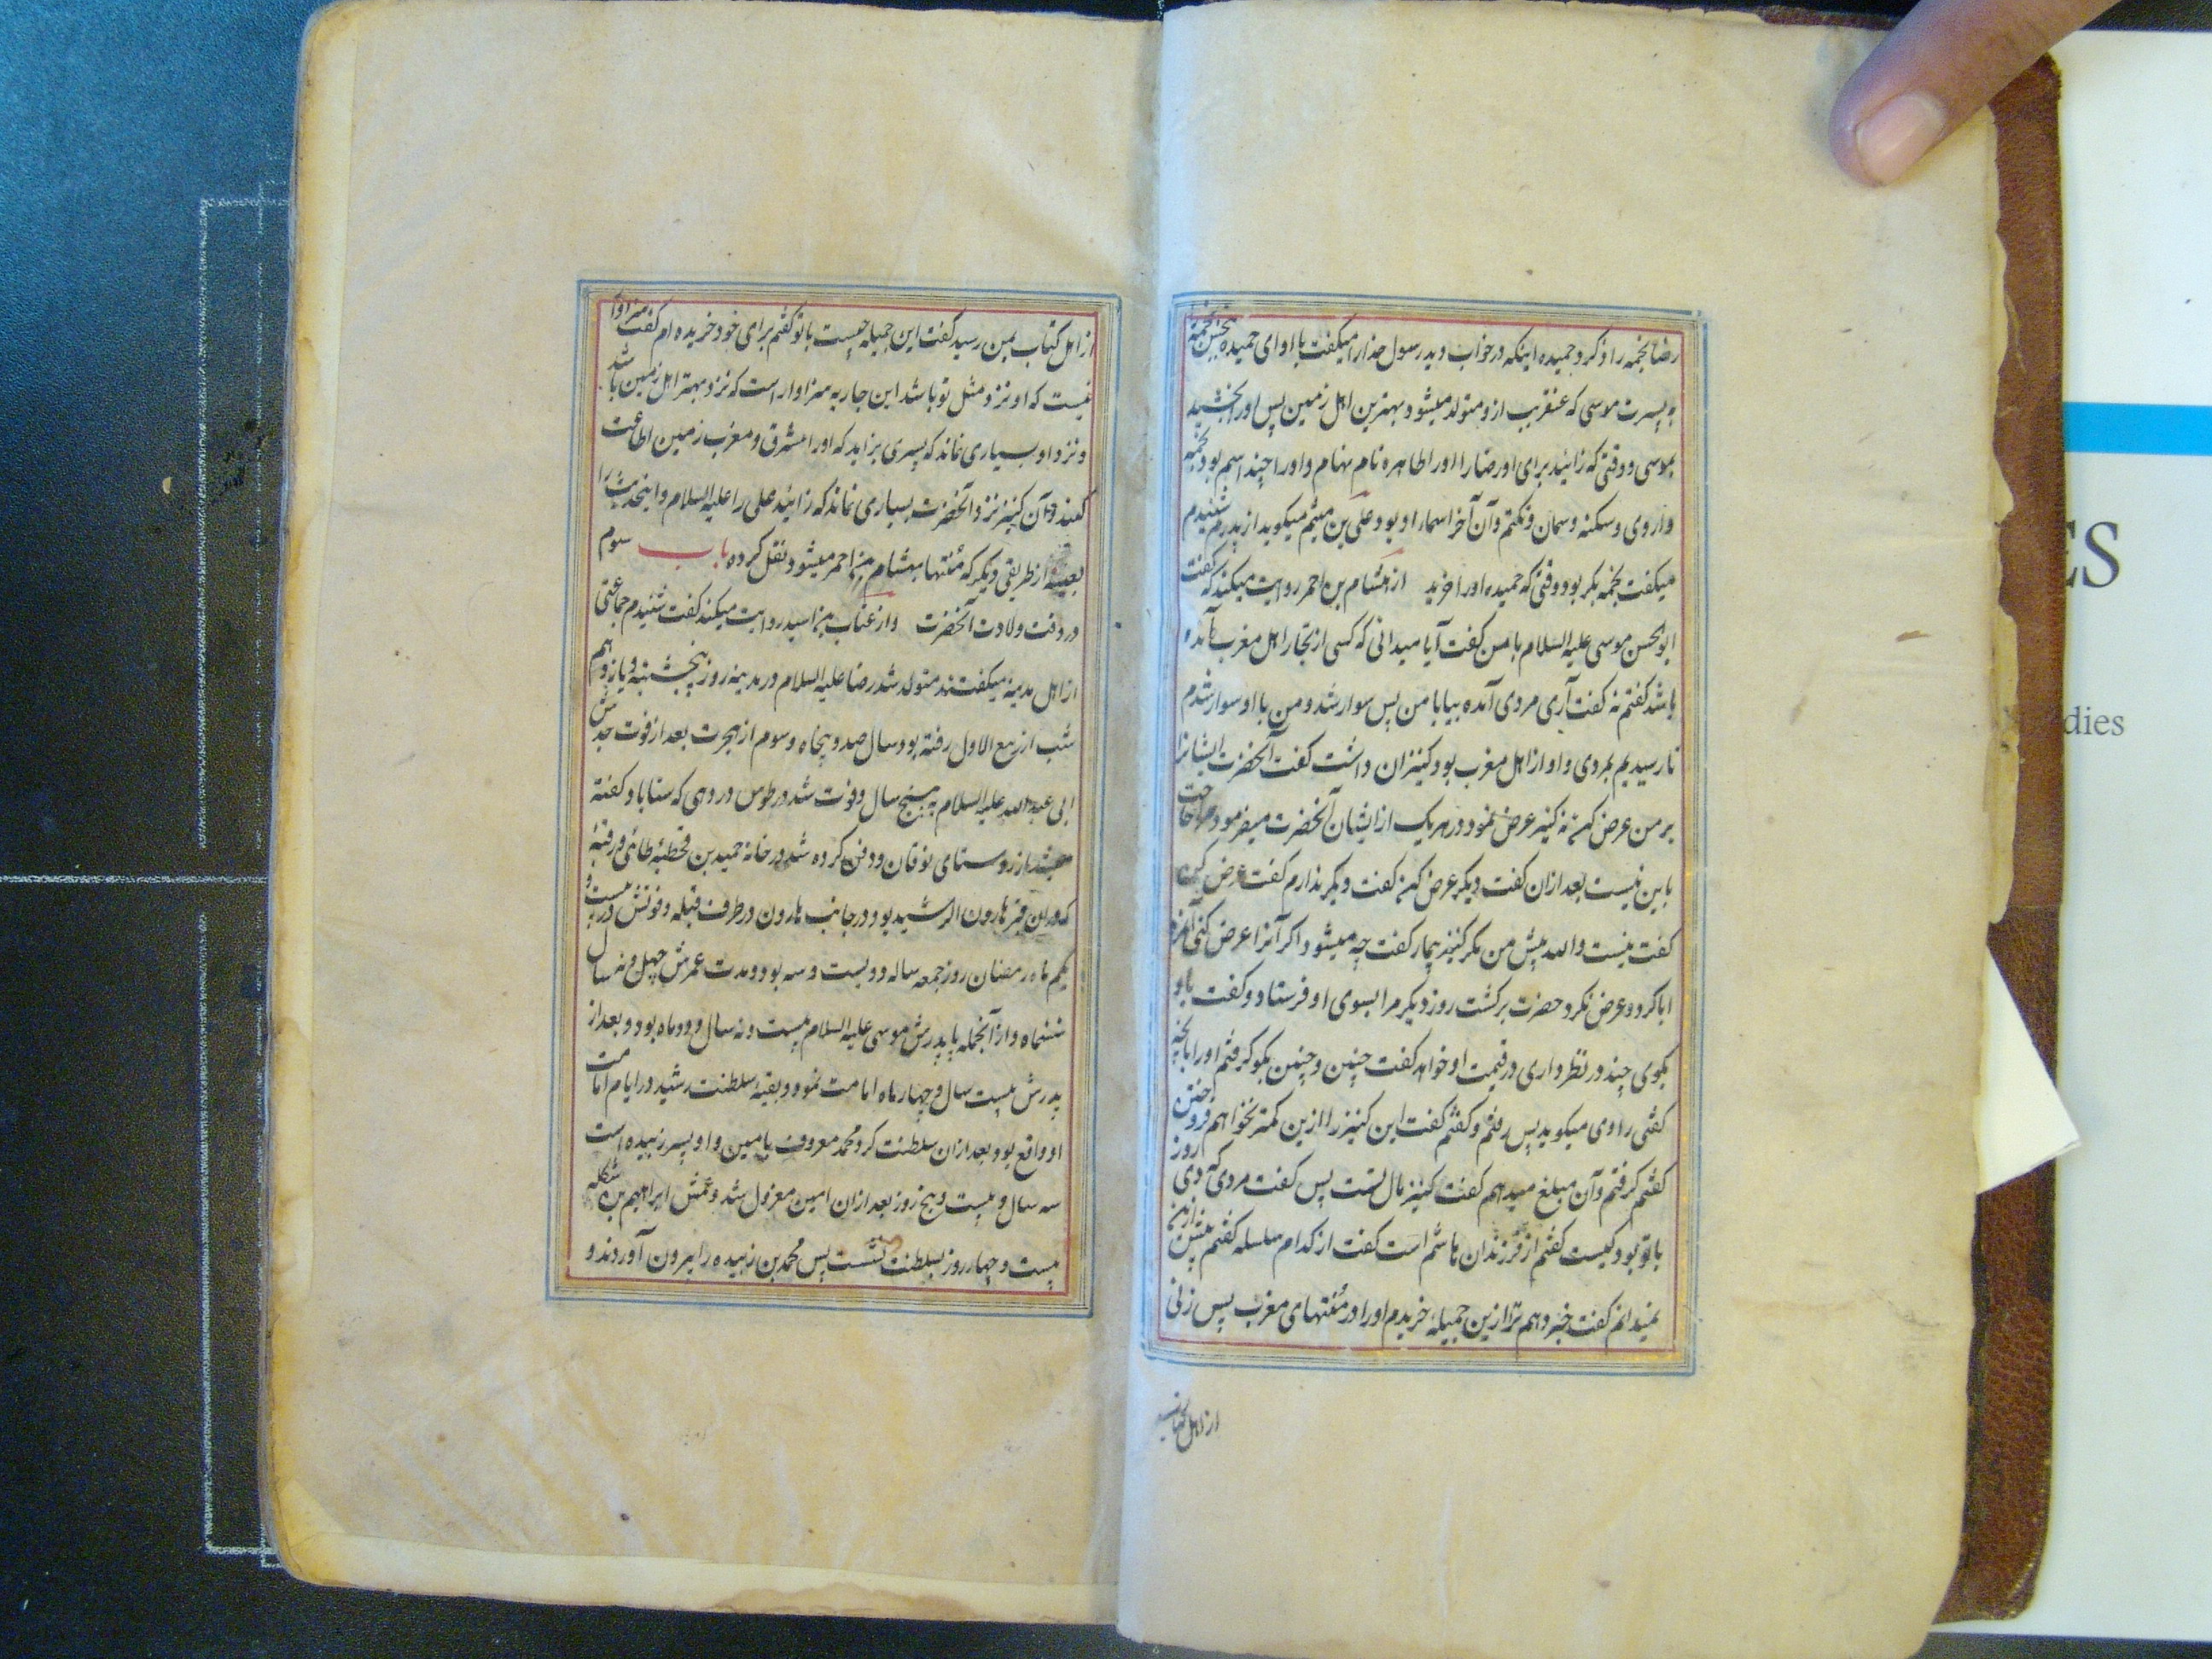 رضا نجمه را و ذکر کرد حمیده اینکه در خواب دید رسول خدا را میکفت با او ای حمیده ببخش نجمه را
به پسرت موسی که عنقریب ازو متولد میشود بهترین اهل زمین پس او را بخشید
بموسی و وقتی که زائید برای او رضا را او را طاهره نام نهاد و او را چند اسم بود نجمه
و اروی و سکنه و سمان و تکتم و آن آخر اسماء او بود علی بن میثم میکوید از پدرم شنیدم
میکفت نجمه بکر بود وقتی که حمیده او را خرید از هشام بن احمر روایت میکند که کفت
ابو الحسن موسی علیه السلام با من کفت آیا میدانی که کسی از تجار اهل مغرب آمده
باشد کفتم نه کفت آری مردی آمده بیا با من پس سوار شد و من با او سوار شدم
تا رسیدیم بمردی و او از اهل مغرب بود کنیزان داشت کفت آنحضرت ایشانرا
بر من عرض کن نه کنیز عرض نمود در هر یک از ایشان آنحضرت میفرمود مرا حاجت
باین نیست بعد ازان کفت دیکر عرض کن کفت دیکر ندارم کفت عرض کن
کفت نیست والله پیش من مکر کنیز بیمار کفت چه میشود اکر آنرا عرض کنی آنمرد
ابا کرد و عرض نکرد حضرت برکشت روز دیکر مرا بسوی او فرستاد و کفت باو
بکوی چند در نظر داری در قیمت او خواهد کفت چنین و چنین بکو که رفتم او را بانچه
کفتی راوی میکوید پس رفتم و کفتم کفت این کنیز را ازین کمتر نخواهم فروختن
کفتم کرفتم و آن مبلغ میدهم کفت کنیز مال تست پس کفت مردی که دی روز
با تو بود کیست کفتم از فرزندان هاشم است کفت از کدام سلسله کفتم بیش ازین
نمیدانم کفت خبر دهم ترا ازین جمیله خریدم او را در منتهای مغرب پس زنی
از اهل کتاب
از اهل کتاب بمن رسید کفت این جمیله چیست با تو کفتم برای خود خریده ام کفت سزاوار
نیست که او نزد مثل تو باشد این جاریه سزاوار است که نزد بهتر اهل زمین باشد
و نزد او بسیاری نماند که پسری بزاید که او را مشرق و مغرب زمین اطاعت
کنند و آن کنیز نزد آنحضرت بسیاری نماند که زائید علی را علیه السلام و اینحدیث را
بعینه از طریقی دیکر که منتها بهشام بن احمر میشود نقل کرده باب سوم
در وقت ولادت آنحضرت و از غیاث بن اسید روایت میکند کفت شنیدم جماعتی
از اهل مدینه میکفتند متولد شد رضا علیه السلام در مدینه روز پنجشنبه و یازدهم
شب از ربیع الاول رفته بود سال صد و پنجاه و سوم از هجرت بعد از فوت جدش
ابی عبد الله علیه السلام به پنج سال و فوت شد در طوس در دهی که سناباد کفته
میشد از روستای نوقان و دفن کرده شد در خانه حمید بن قحطبه طائی در قبه
که دران قبر هارون الرشید بود در جانب هارون در طرف قبله و فوتش در بیست و
یکم ماه رمضان روز جمعه ساله دویست و سه بود و مدت عمرش چهل و نه سال
ششماه و از آنجمله با پدرش موسی علیه السلام بیست و نه سال و دو ماه بود و بعد از
پدرش بیست سال و چهار ماه امامت نمود و بقیه سلطنت رشید در ایام امامت
او واقع بود بعد ازان سلطنت کرد محمد معروف بامین و او پسر زبیده است
سه سال و بیست و پنج روز بعد ازان امین معزول شد و عمش ابراهیم بن شکله
بیست و چهار روز بسلطنت نشست پس محمد بن زبیده را بیرون آوردند و
ES
dies